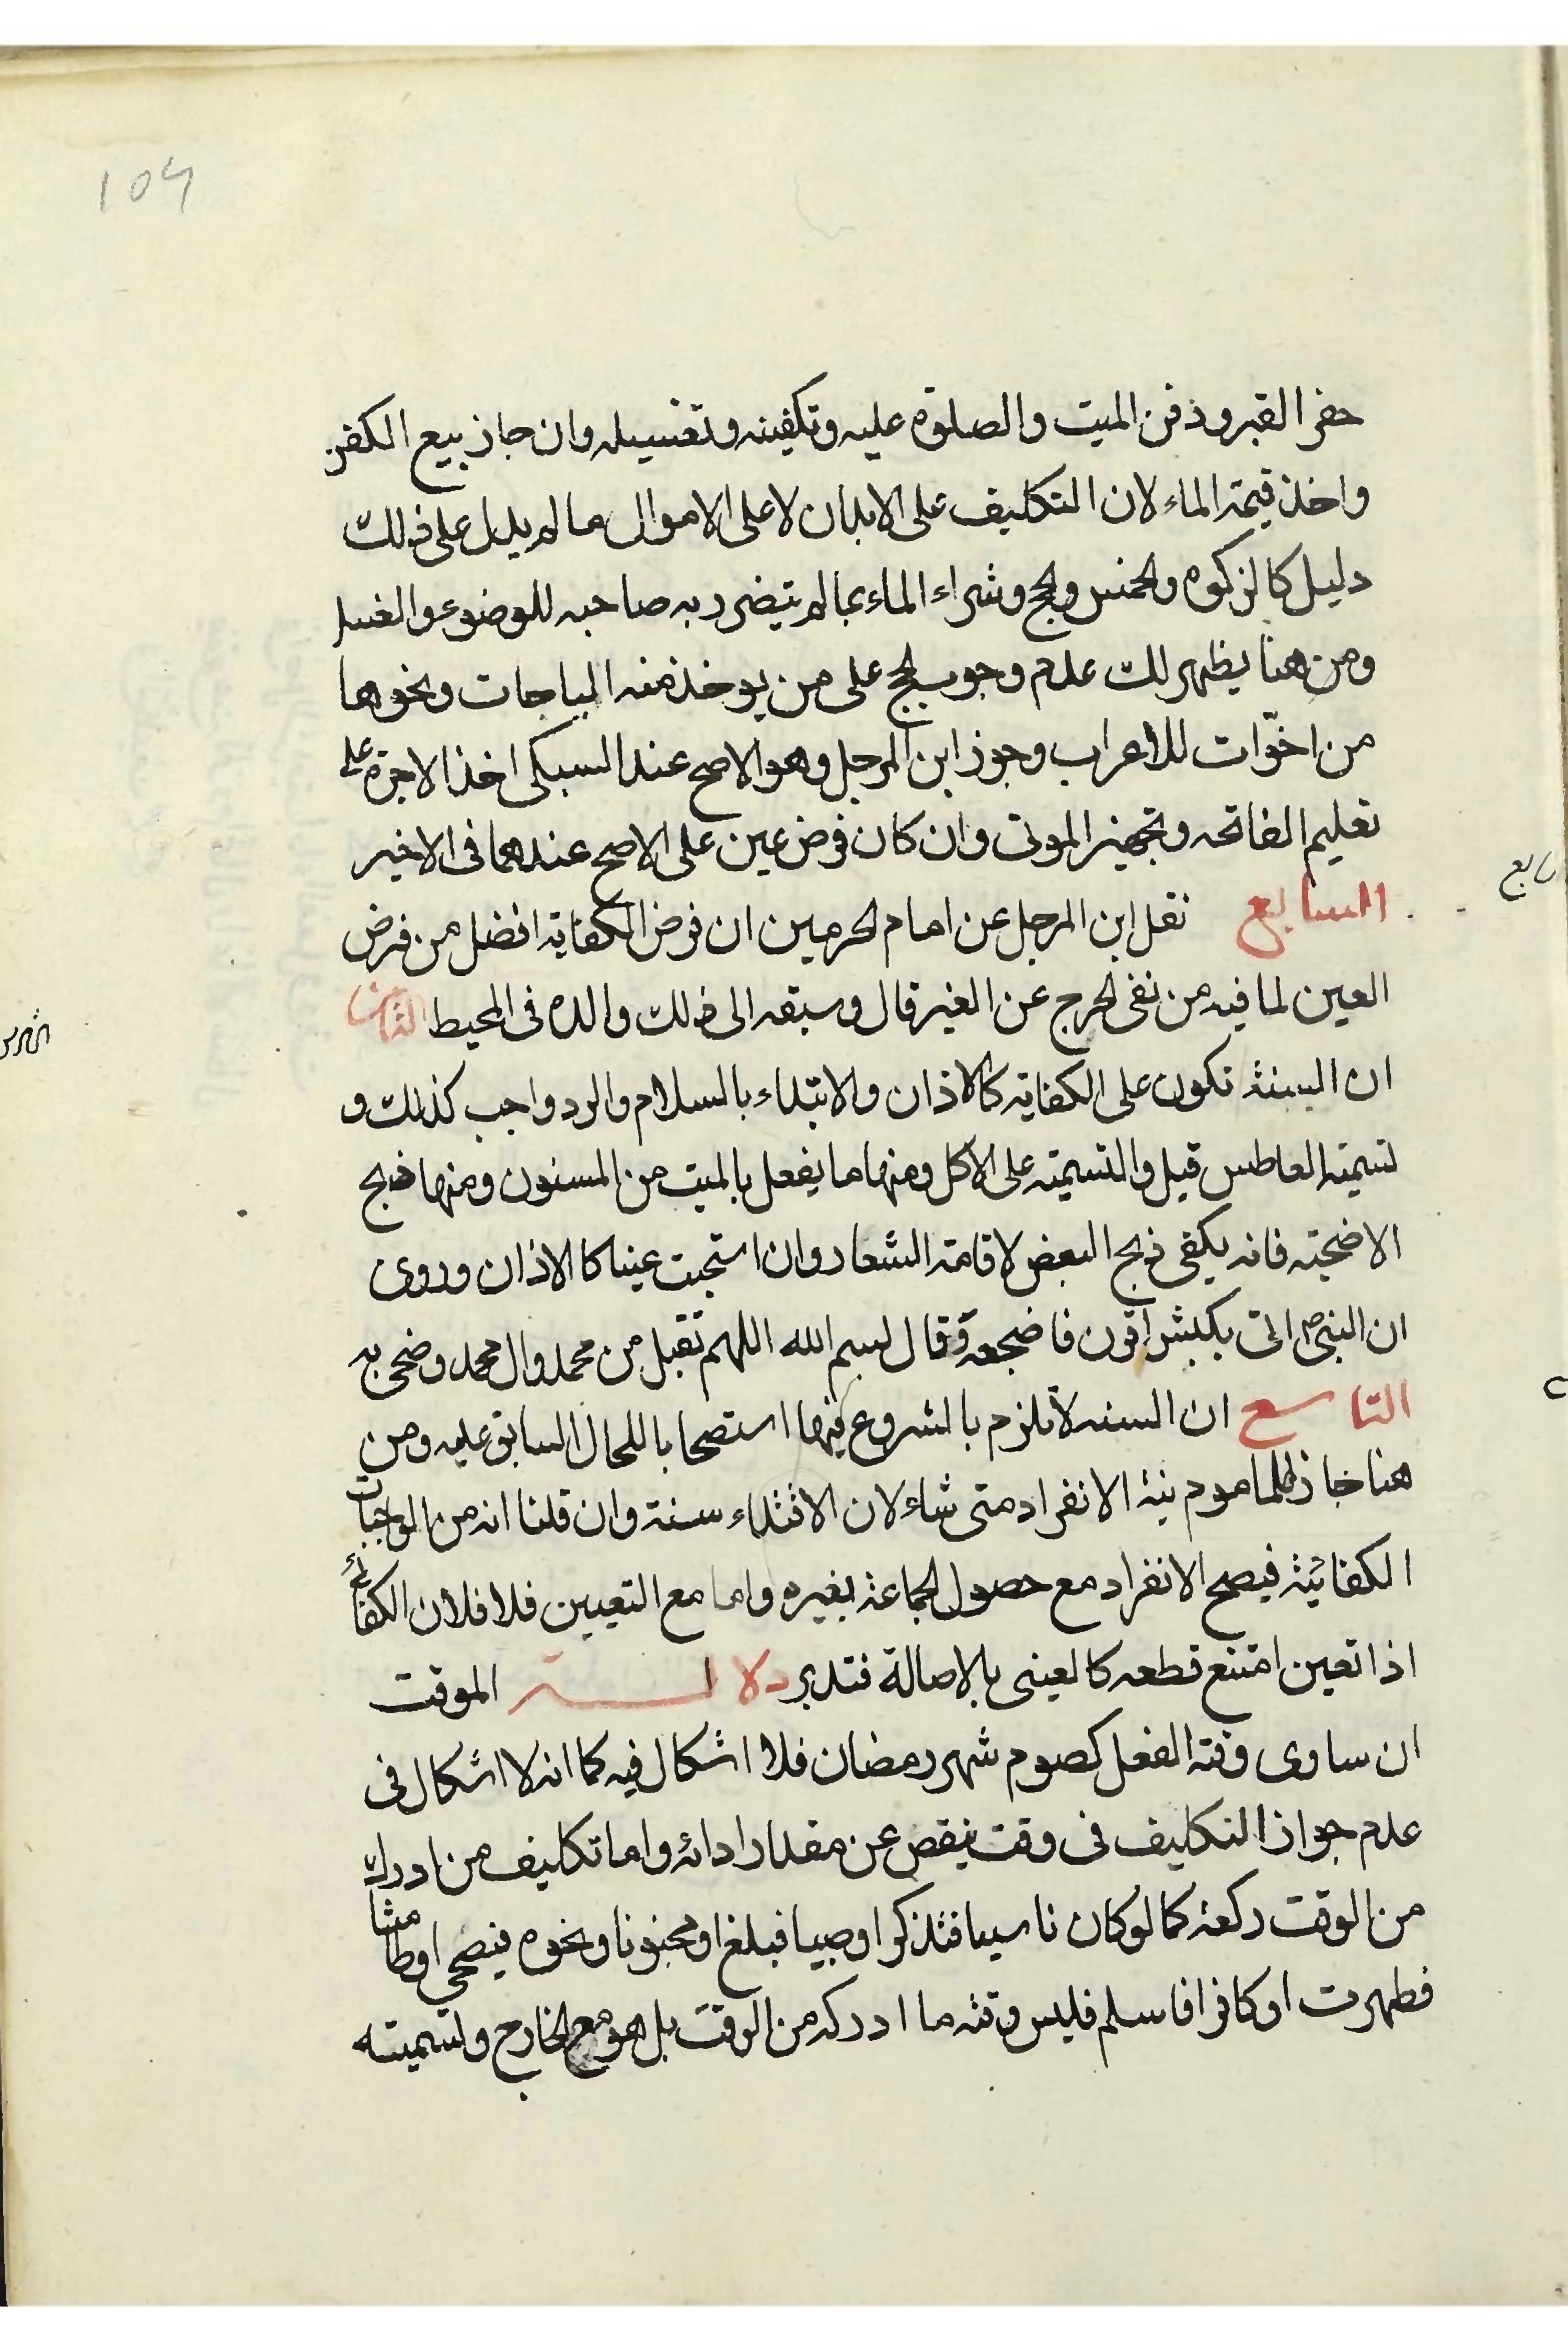 104
حفر القبر ودفن الميت والصلوة عليه وتكفينه وتغسيله وان جاز بيع الكفن
واخذ قيمة الماء لان التكليف على الابدان لا على الاموال ما لم يدل على ذلك
دليل كالزكوة والخمس والحج وشراء الماء بما لم يتضرر به صاحبه للوضوء والغسل
ومن هنا يظهر لك عدم وجوب الحج على من يوخذ منه المباجات ونحوها
من اخوّات للاعراب وجوز ابن المرجل وهو الاصح عند السبكى اخذ الاجرة على
تعليم الفاتحه وتجهيز الموتى وان كان فرض عين على الاصح عندهما فى الاخير
السابع نقل ابن المرجل عن امام الحرمين ان فرض الكفاية افضل من فرض
العين لما فيه من نفى الحرج عن الغير قال وسبقه الى ذلك والده فى المحيط الثامن
ان السنة تكون على الكفاية كالاذان والابتداء بالسلام والرد واجب كذلك و
تسميته العاطس قيل والتسمية على الاكل ومنها ما يفعل بالميت من المسنون ومنها ذبح
الاضحية فانه يكفى ذبح البعض لاقامة الشعار وان استحبت عينا كالاذان وروى
ان النبى ص اتى بكبش اقرن فاضجعه وقال بسم الله اللهم تقبل من محمد وال محمد وضحى به
التاسع ان السنه لا تلزم بالشروع فيها استصحابا للحال السابق عليه ومن
هنا جاز للماموم نية الانفراد متى شاء لان الاقتداء سنة وان قلنا انه من الواجبات
الكفائية فيصح الانفراد مع حصول الجماعة بغيره واما مع التعيين فلا فلان الكفائى
اذا تعين امتنع قطعه كالعينى بالاصالة فتدبر دلالة الموقت
ان ساوى وقته الفعل كصوم شهر رمضان فلا اشكال فيه كما انه لا اشكال فى
عدم جواز التكليف فى وقت ينقص عن مقدار ادائه واما تكليف من ادرك
من الوقت ركعة كما لو كان ناسيا فتذكر او صبيا فبلغ او مجنونا ونحوه فيصحى او طامثا
فطهرت او كافرا فاسلم فليس وقته ما ادركه من الوقت بل هو مع الخارج وتسميته